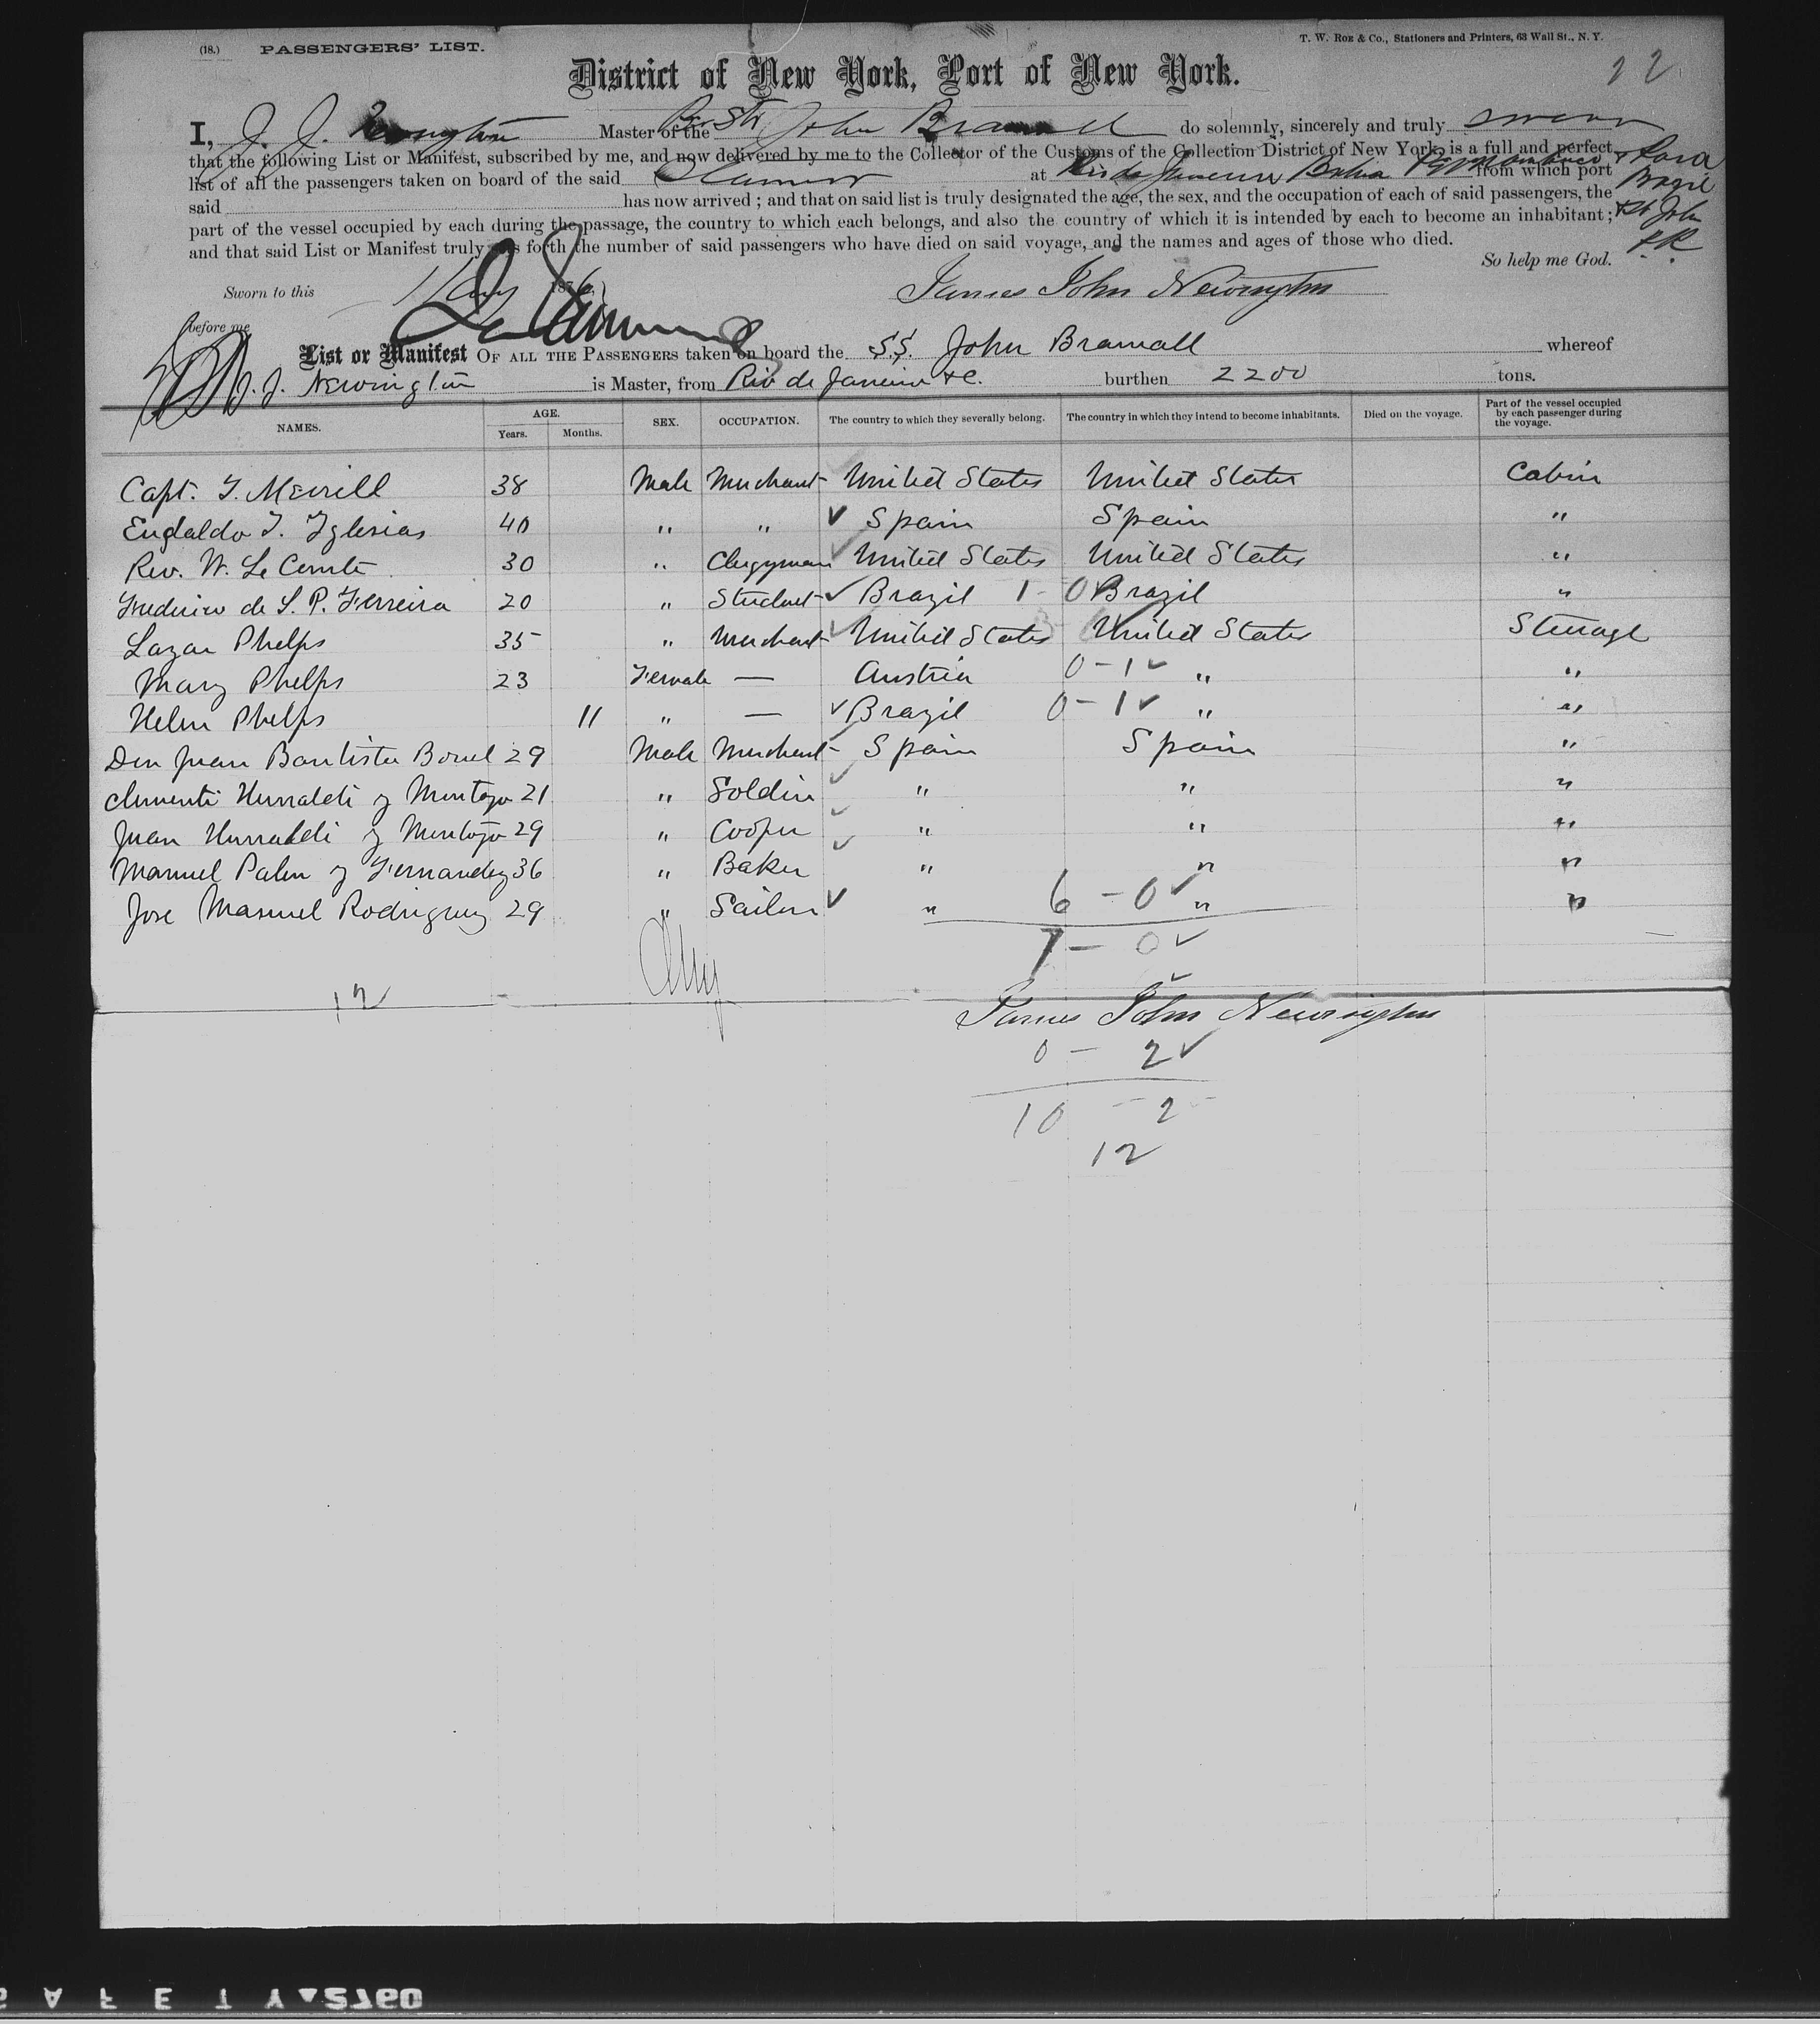 (18.) PASSENGERS' LIST.
T. W. Roe & Co., Stationers and Printers, 63 Wall St., N. Y.
District of New York, Port of New York.
I, J. J. Newington Master of the Br Str John Bramall do solemnly, sincerely and truly swear
that the following List or Manifest, subscribed by me, and now delivered by me to the Collector of the Customs of the Collection District of New York, is a full and perfect
list of all the passengers taken on board of the said Steamer at Rio de Janeiro Bahia Pernambuco & Para from which port
Brazil
said has now arrived ; and that on said list is truly designated the age, the sex, and the occupation of each of said passengers, the
part of the vessel occupied by each during the passage, the country to which each belongs, and also the country of which it is intended by each to become an inhabitant ; & St John
P.R.
and that said List or Manifest truly sets forth the number of said passengers who have died on said voyage, and the names and ages of those who died.
So help me God.
Sworn to this 1876
James John Newington
before me
List or Manifest OF ALL THE PASSENGERS taken on board the S.S. John Bramall whereof
J. J. Newington is Master, from Rio de Janeiro &c. burthen 2200 tons.
NAMES. AGE. Years. Months. SEX. OCCUPATION. The country to which they severally belong. The country in which they intend to become inhabitants. Died on the voyage. Part of the vessel occupied by each passenger during the voyage.
Capt. T. Merrill 38 Male Merchant United States United States Cabin
Eudaldo T. Yglesias 40 " " ✓ Spain Spain "
Rev. W. Le Comte 30 " Clergyman United States United States "
Frederico de S. P. Ferreira 20 " Student ✓ Brazil 1 - 0 Brazil "
Lazar Phelps 35 " Merchant ✓ United States United States Steerage
Mary Phelps 23 Female — Austria 0 - 1 ✓ " "
Helen Phelps 11 " — ✓ Brazil 0 - 1 ✓ " "
Don Juan Bautista 29 Male Merchant Spain Spain "
Clementi y 21 " Soldier ✓ " " "
Juan y 29 " Cooper ✓ " " "
Manuel y Fernandez 36 " Baker ✓ " " "
Jose Manuel Rodriguez 29 " Sailor ✓ " 6 - 0 ✓ " "
7 - 0 ✓
12
James John Newington
0 - 2 ✓
10 - 2
12
SAFETY